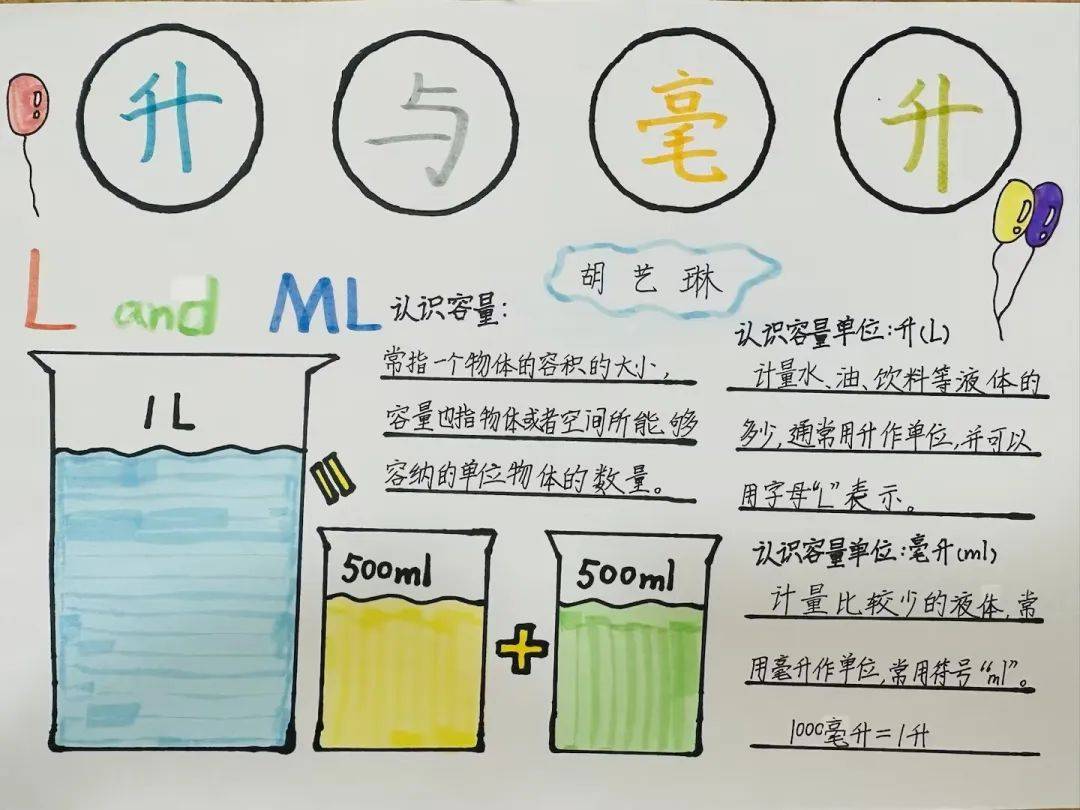 升与毫升
L and ML
胡艺琳
认识容量:
常指一个物体的容积的大小,
容量也指物体或者空间所能够
容纳的单位物体的数量。
1L
500ml
+
500ml
认识容量单位:升(L)
计量水、油、饮料等液体的
多少,通常用升作单位,并可以
用字母“L”表示。
认识容量单位:毫升(ml)
计量比较少的液体,常
用毫升作单位,常用符号“ml”。
1000毫升=1升